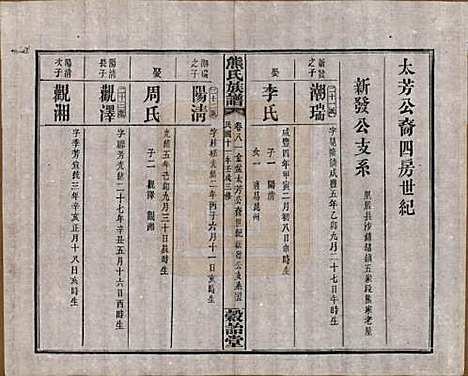 太芳公裔四房世紀
新發公支系
居辰長沙鎮靖鎮五家段熊家老屋
新發之子
二十一派
潮瑞
字晃 清咸豐五年乙卯九月二十七日午時生
娶
李氏
咸豐四年甲寅二月初八日亥時生
子一 陽清
女一 適易昆州
熊氏族譜
卷八
太芳公裔世紀新發公支系
民國十一年壬戌三修
穀詒堂
潮瑞之子
二十二派
陽清
字桂 清光緒二年丙子六月十一日亥時生
娶
周氏
光緒五年己卯九月三十日辰時生
子二 觀澤 觀湘
陽清長子
二十三派
觀澤
字聯芳光緒二十七年辛丑五月十六日酉時生
陽清次子
觀湘
字季芳宣統三年辛亥正月十八日亥時生